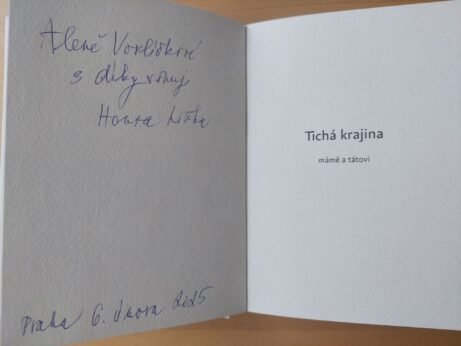 Aleně Vorlíčkové
s díky věnuj
Honza
Praha 6. února 2025
Tichá krajina
mámě a tátovi